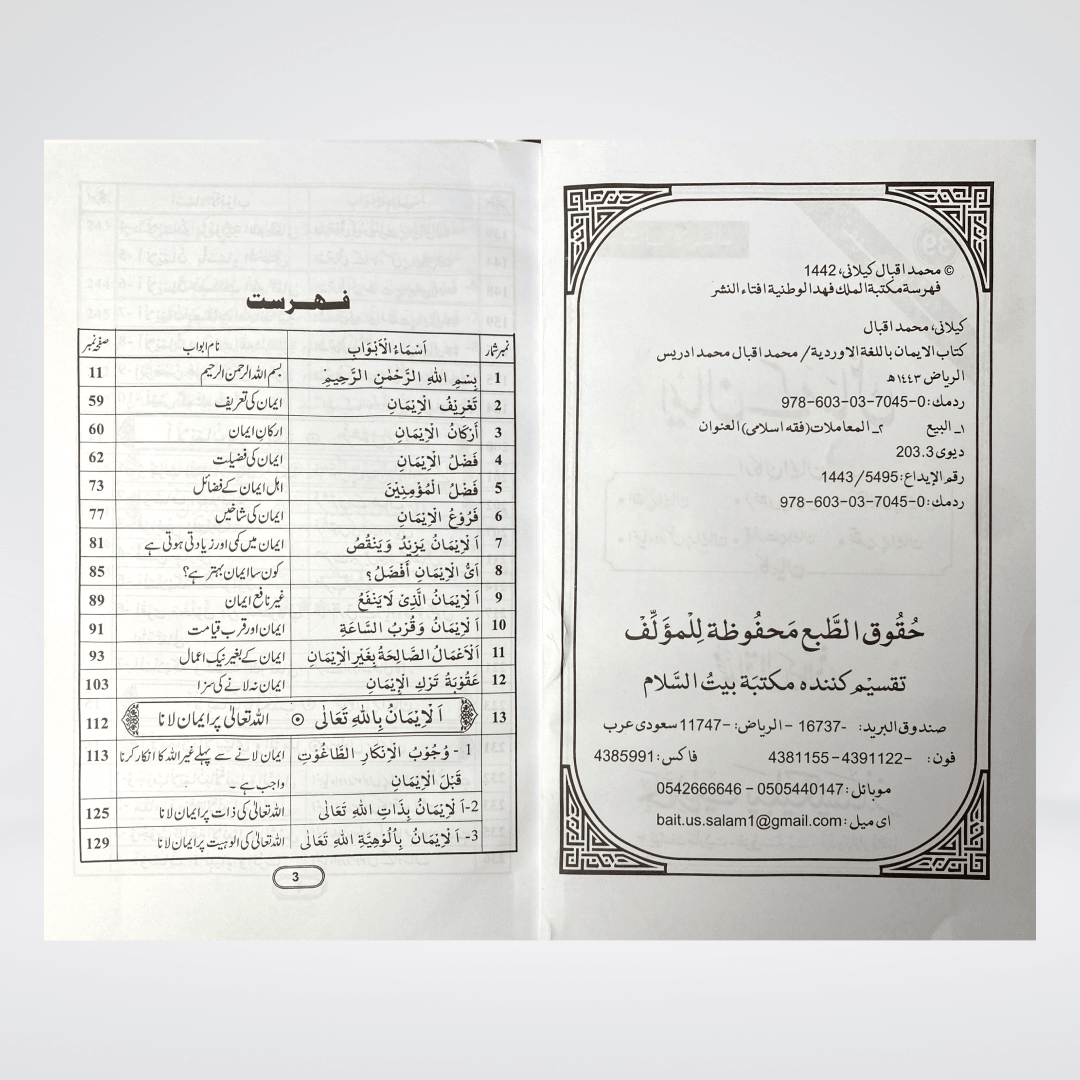 © محمد اقبال کیلانی، 1442
فهرسة مكتبة الملك فهد الوطنية افتاء النشر
کیلانی، محمد اقبال
کتاب الایمان باللغة الاوردیة/ محمد اقبال محمد ادریس
الریاض ١٤٤٣ھ
ردمك: 0-7045-03-603-978
١ـ البیع ٢ـ المعاملات (فقه اسلامی) العنوان
دیوی 203.3
رقم الإیداع: 1443/5495
ردمك: 0-7045-03-603-978
حُقُوق الطَّبع مَحفُوظة لِلْمؤَلِّفْ
تقسیم کننده مکتبة بیتُ السَّلام
صندوق البرید: -16737 - الریاض: -11747 سعودی عرب
فون: -4391122 - 4381155 فاکس: 4385991
موبائل: 0505440147 - 0542666646
ای میل: bait.us.salam1@gmail.com
فہرست
نمبر شمار اَسْمَاءُ الْاَبْوَابِ نام ابواب صفحہ نمبر
1 بِسْمِ اللهِ الرَّحْمٰنِ الرَّحِيْمِ بسم اللہ الرحمن الرحیم 11
2 تَعْرِيْفُ الْاِيْمَانِ ایمان کی تعریف 59
3 أَرْكَانُ الْاِيْمَانِ ارکانِ ایمان 60
4 فَضْلُ الْاِيْمَانِ ایمان کی فضیلت 62
5 فَضْلُ الْمُؤْمِنِيْنَ اہل ایمان کے فضائل 73
6 فَرُوعُ الْاِيْمَانِ ایمان کی شاخیں 77
7 اَلْاِيْمَانُ يَزِيْدُ وَيَنْقُصُ ایمان میں کمی اور زیادتی ہوتی ہے 81
8 اَىُّ الْاِيْمَانِ أَفْضَلُ؟ کون سا ایمان بہتر ہے؟ 85
9 اَلْاِيْمَانُ الَّذِىْ لَايَنْفَعُ غیر نافع ایمان 89
10 اَلْاِيْمَانُ وَقُرْبُ السَّاعَةِ ایمان اور قرب قیامت 91
11 اَلْاَعْمَالُ الصَّالِحَةُ بِغَيْرِ الْاِيْمَانِ ایمان کے بغیر نیک اعمال 93
12 عَقُوْبَةُ تَرْكِ الْاِيْمَانِ ایمان نہ لانے کی سزا 103
13 اَلْاِيْمَانُ بِاللهِ تَعَالٰى ⊙ اللہ تعالیٰ پر ایمان لانا 112
1 - وُجُوْبُ الْاِنْكَارِ الطَّاغُوْتِ ایمان لانے سے پہلے غیر اللہ کا انکار کرنا 113
قَبْلَ الْاِيْمَانِ واجب ہے ۔
2- اَلْاِيْمَانُ بِذَاتِ اللهِ تَعَالٰى اللہ تعالیٰ کی ذات پر ایمان لانا 125
3- اَلْاِيْمَانُ بِاُلُوْهِيَّةِ اللهِ تَعَالٰى اللہ تعالیٰ کی الوہیت پر ایمان لانا 129
3